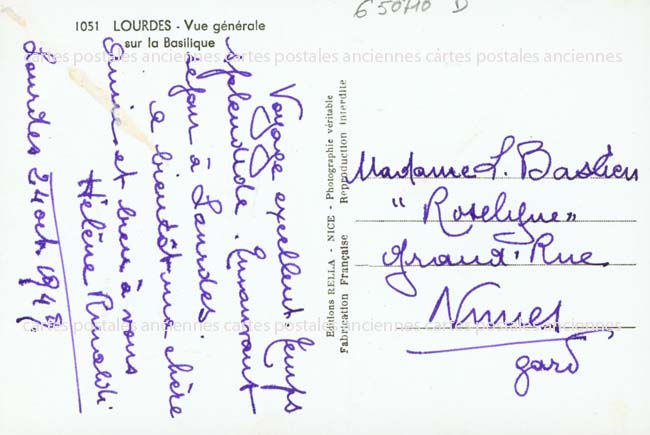 650710 D
1051 LOURDES - Vue générale
sur la Basilique
cartes postales anciennes cartes postales anciennes cartes postales anciennes
Voyage excellent, temps
splendide.
séjour à Lourdes.
a bientôt ma chère
amie et bien à vous
Hélène Rinaldi
Lourdes 24 oct. 194
Editions RELLA - NICE - Photographie véritable
Fabrication Française Reproduction interdite
Madame L. Bastien
"Roselyne"
Grand'Rue
Nimes
gard
cartes postales anciennes cartes postales anciennes cartes postales anciennes